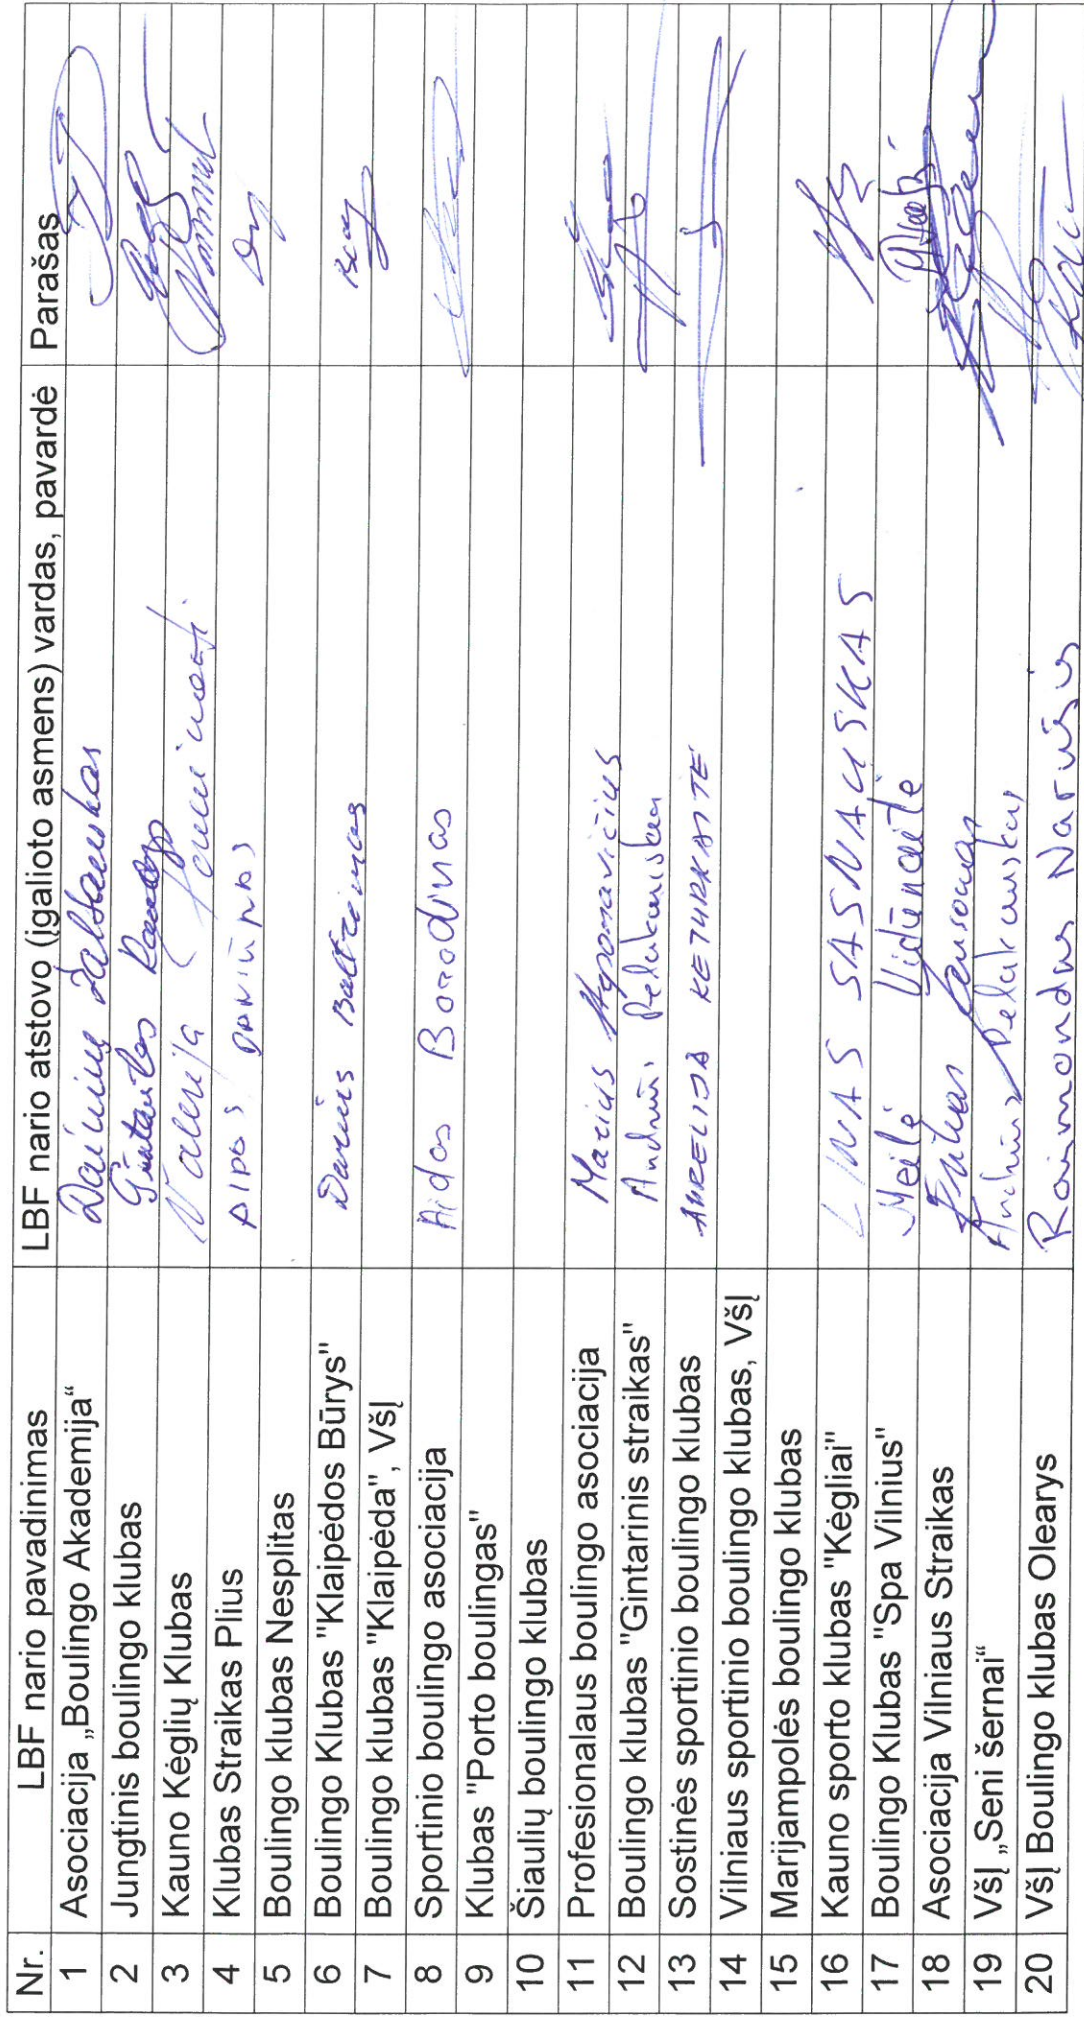 Nr. LBF nario pavadinimas LBF nario atstovo (įgalioto asmens) vardas, pavardė Parašas
1 Asociacija „Boulingo Akademija“ Dainius
2 Jungtinis boulingo klubas Gintautas
3 Kauno Kėglių Klubas Valerija
4 Klubas Straikas Plius
5 Boulingo klubas Nesplitas
6 Boulingo Klubas "Klaipėdos Būrys" Darius Baltrimas
7 Boulingo klubas "Klaipėda", VšĮ
8 Sportinio boulingo asociacija Aidas Borodinas
9 Klubas "Porto boulingas"
10 Šiaulių boulingo klubas
11 Profesionalaus boulingo asociacija Marius Steponavičius
12 Boulingo klubas "Gintarinis straikas"
13 Sostinės sportinio boulingo klubas AURELIJA KETURKAITĖ
14 Vilniaus sportinio boulingo klubas, VšĮ
15 Marijampolės boulingo klubas
16 Kauno sporto klubas "Kėgliai" LINAS SASNAUSKAS
17 Boulingo Klubas "Spa Vilnius" Meilė Vidūnaitė
18 Asociacija Vilniaus Straikas
19 VšĮ „Seni šernai“
20 VšĮ Boulingo klubas Olearys Raimondas Narušis